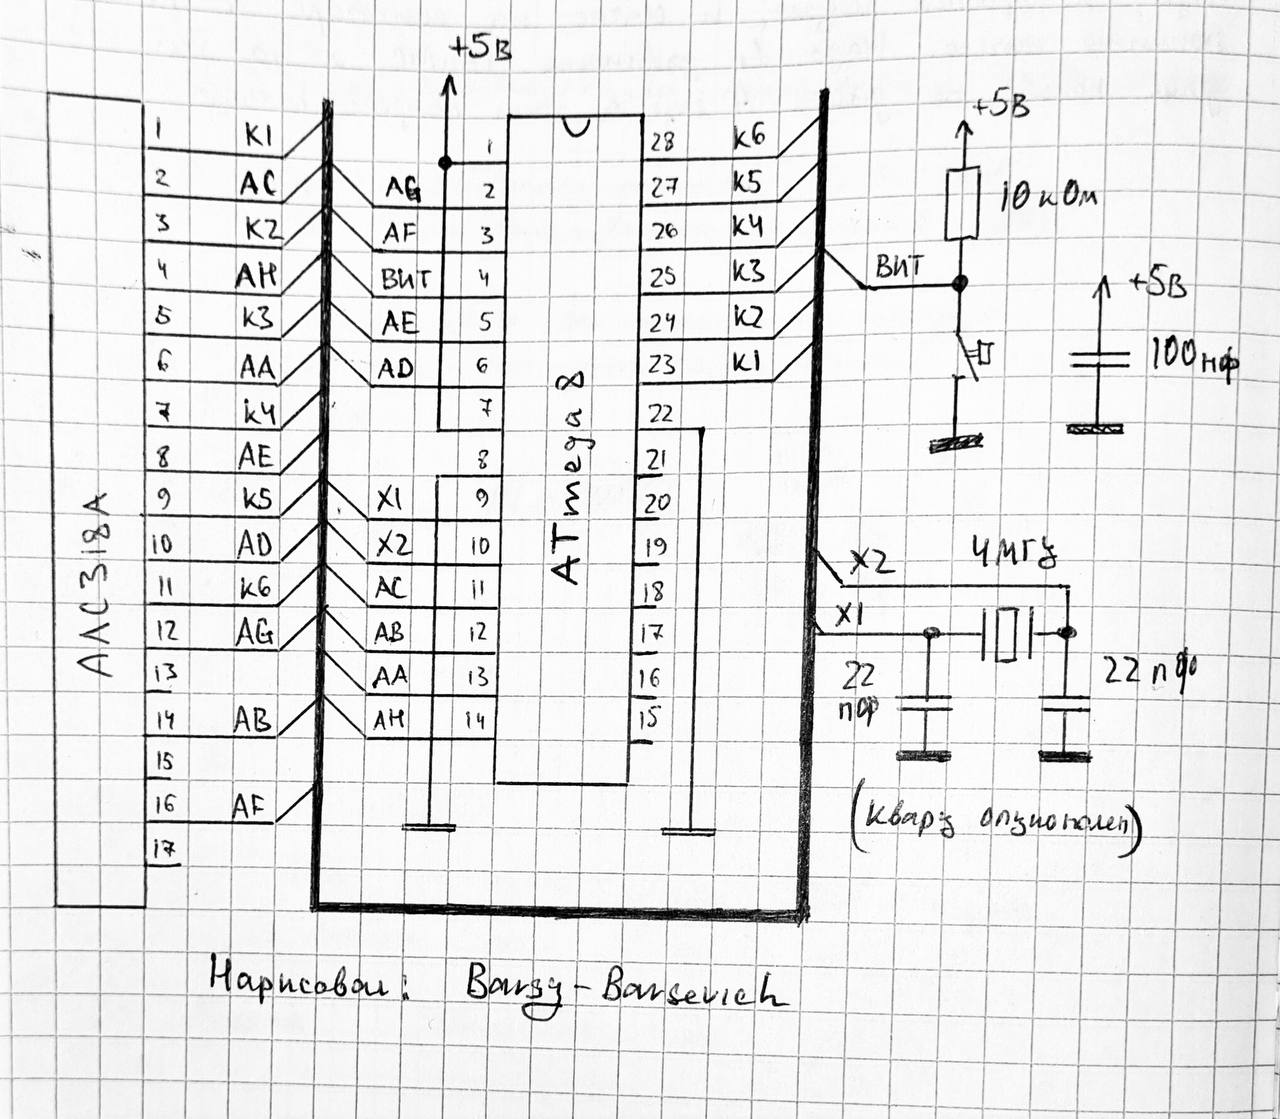 +5В
1 К1
2 AC
3 К2
4 AH
5 К3
6 AA
7 К4
8 AE
9 К5
10 AD
11 К6
12 AG
13
14 AB
15
16 AF
17
AAC318A
1
AG 2
AF 3
ВИТ 4
AE 5
AD 6
7
8
X1 9
X2 10
AC 11
AB 12
AA 13
AH 14
ATmega8
28 К6
27 К5
26 К4
25 К3
24 К2
23 К1
22
21
20
19
18
17
16
15
+5В
10 кОм
ВИТ
+5В
100нФ
X2
4МГц
X1
22
пФ
22 пФ
(Кварц опционален)
Нарисовал: Barsy-Barsevich